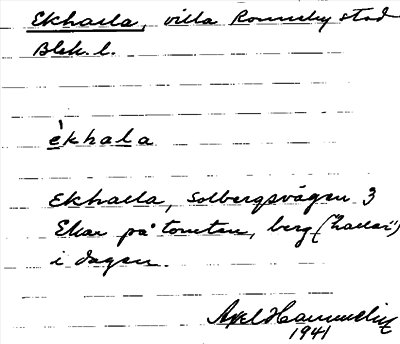 Ekhalla, villa Ronneby stad
Blek. l.
èkhala
Ekhalla, Solbergsvägen 3
Ekar på tomten, berg ("hallar")
i dagen.
Axel Hammelin
1941